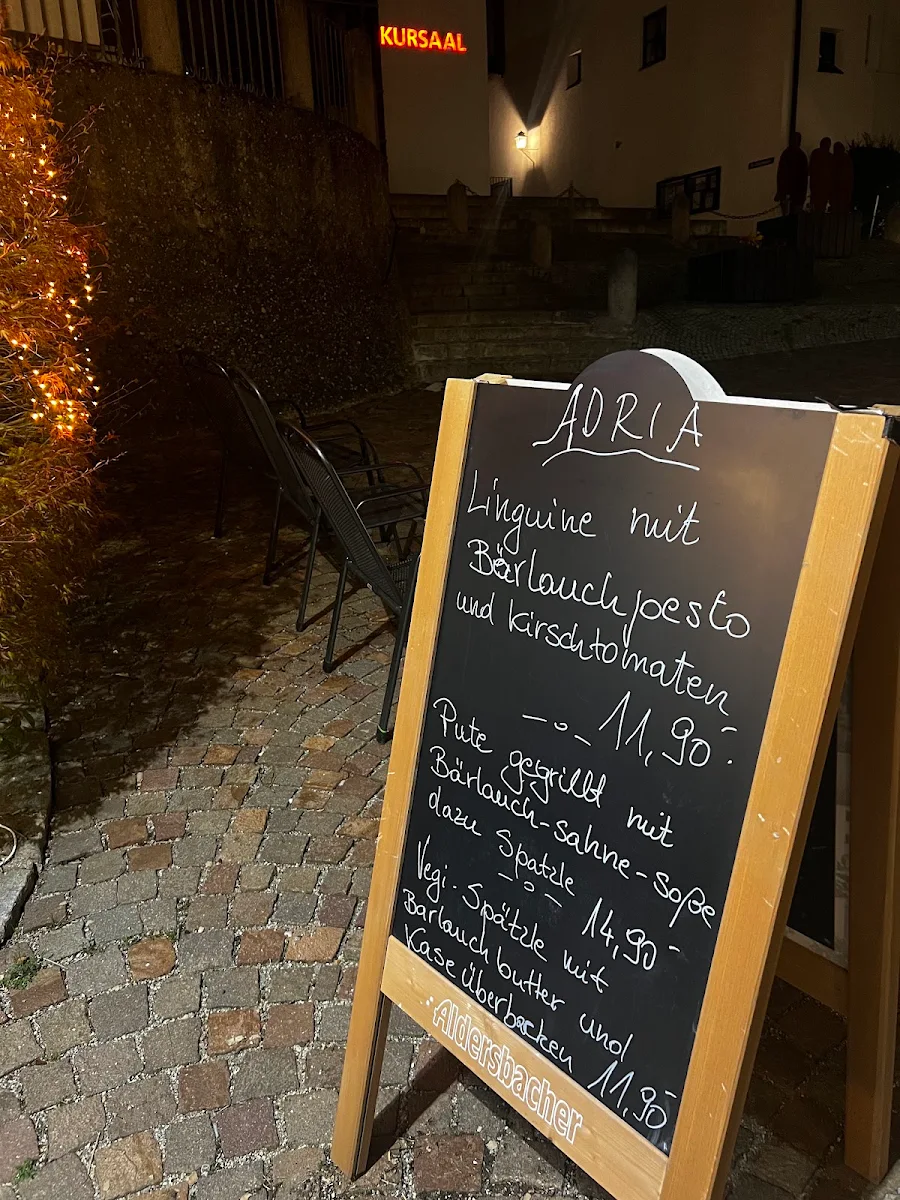 KURSAAL
ADRIA
Linguine mit
Bärlauchpesto
und Kirschtomaten
11,90-
Pute gegrillt mit
Bärlauch-sahne-soße
dazu Spätzle
14,90-
Vegi. Spätzle mit
Bärlauchbutter und
Käse überbacken 11,90
Aldersbacher